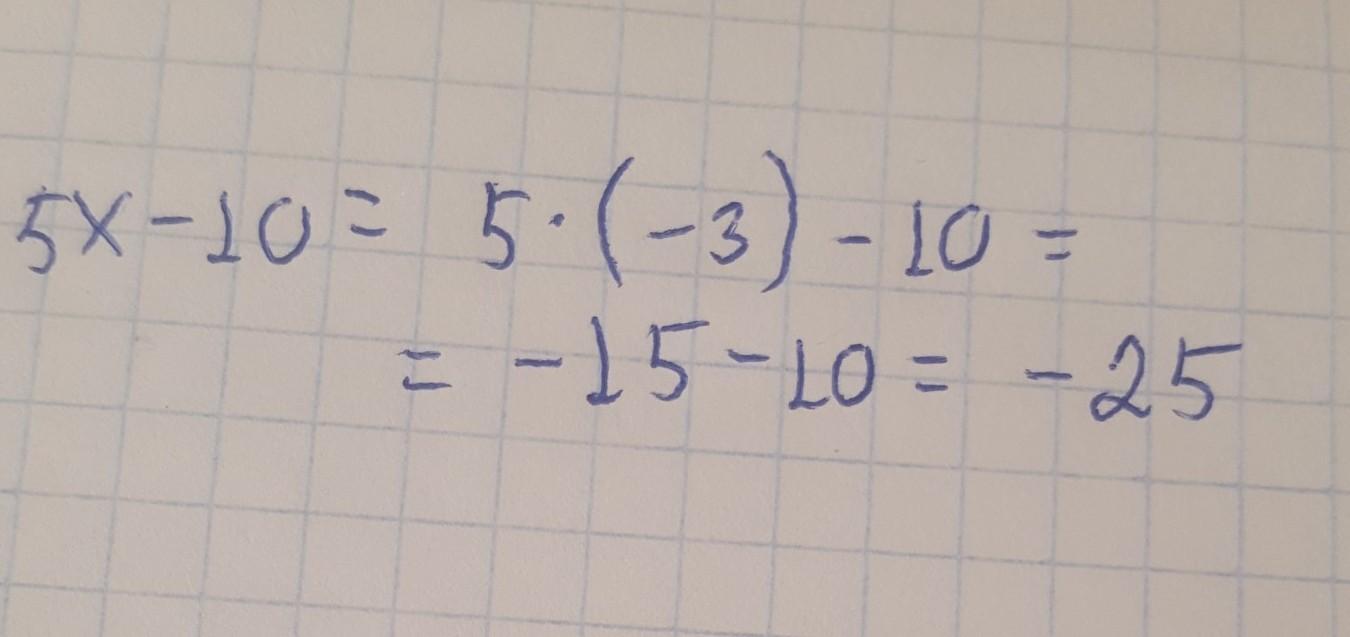 5x - 10 = 5 · (-3) - 10 =
= -15 - 10 = -25